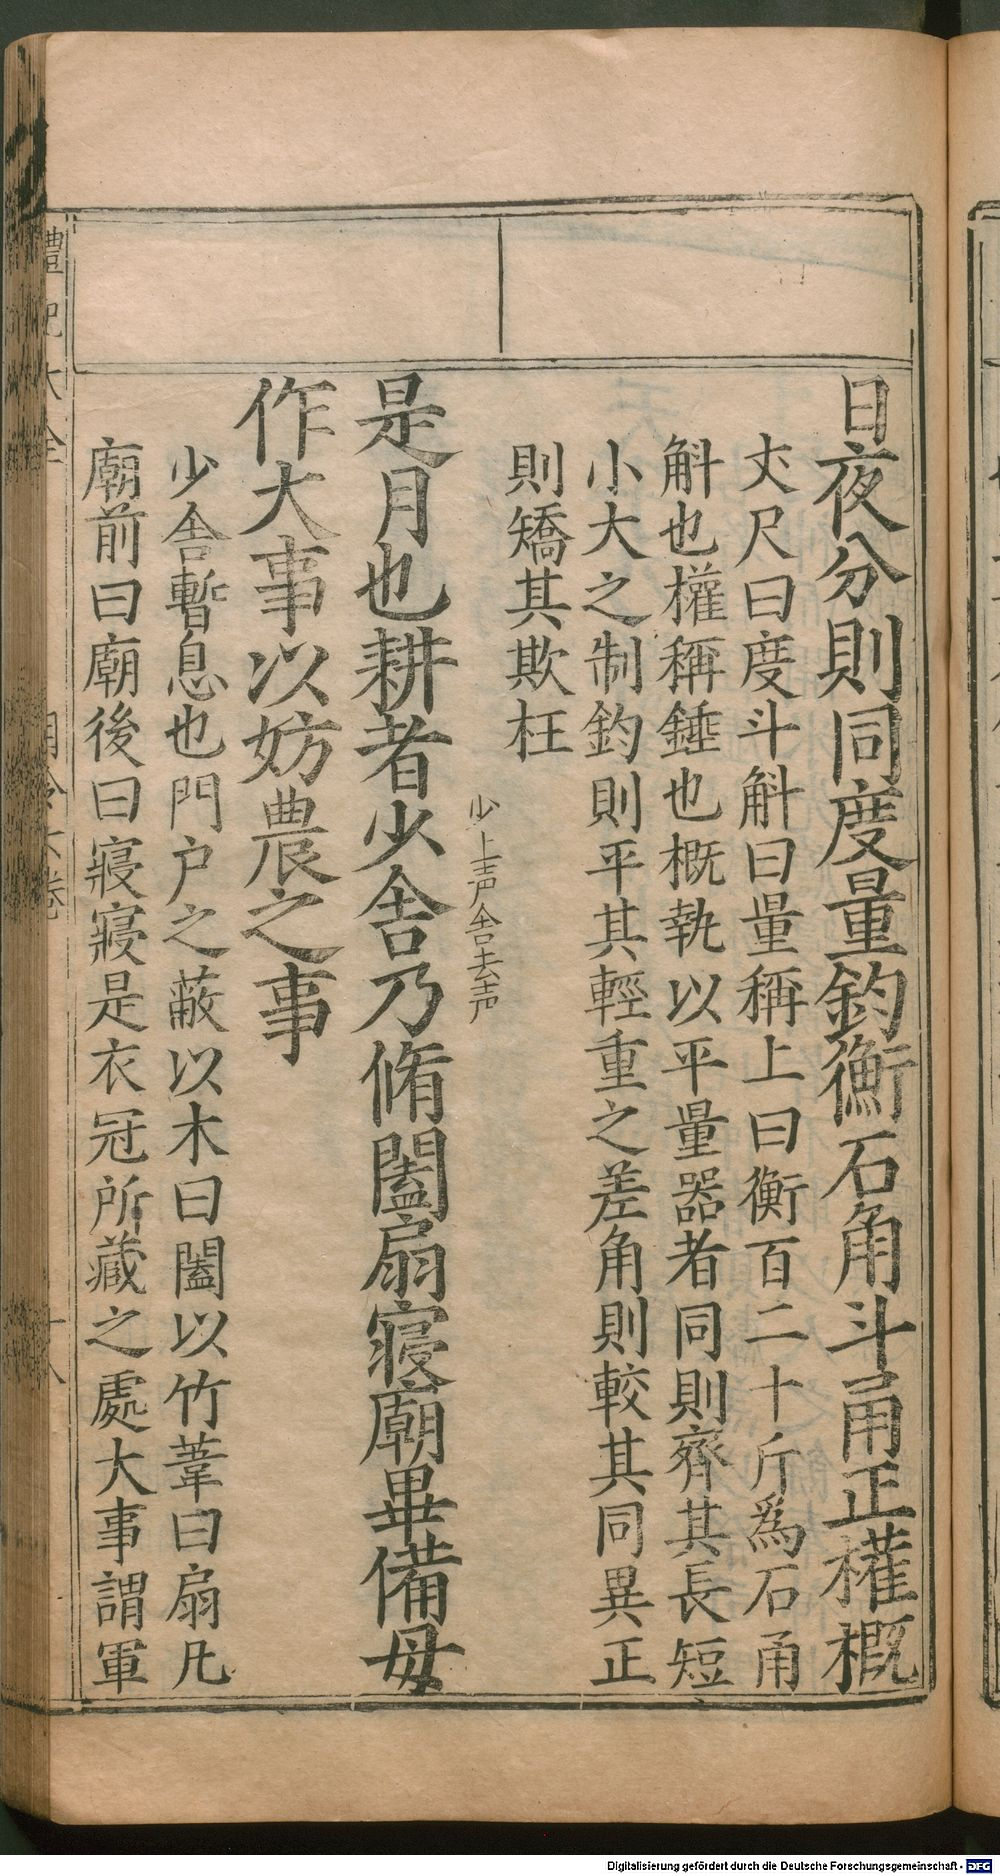 日夜分則同度量鈞衡石角斗甬正權概
丈尺曰度斗斛曰量稱上曰衡百二十斤爲石甬
斛也權稱錘也概執以平量器者同則齊其長短
小大之制鈞則平其輕重之差角則較其同異正
則矯其欺枉
少上声舎去声
是月也耕者少舎乃脩闔扇寢廟畢備毋
作大事以妨農之事
少舎暫息也門户之蔽以木曰闔以竹葦曰扇凡
廟前曰廟後曰寢寢是衣冠所藏之處大事謂軍
禮記大全
月令六卷
十八
Digitalisierung gefördert durch die Deutsche Forschungsgemeinschaft - DFG